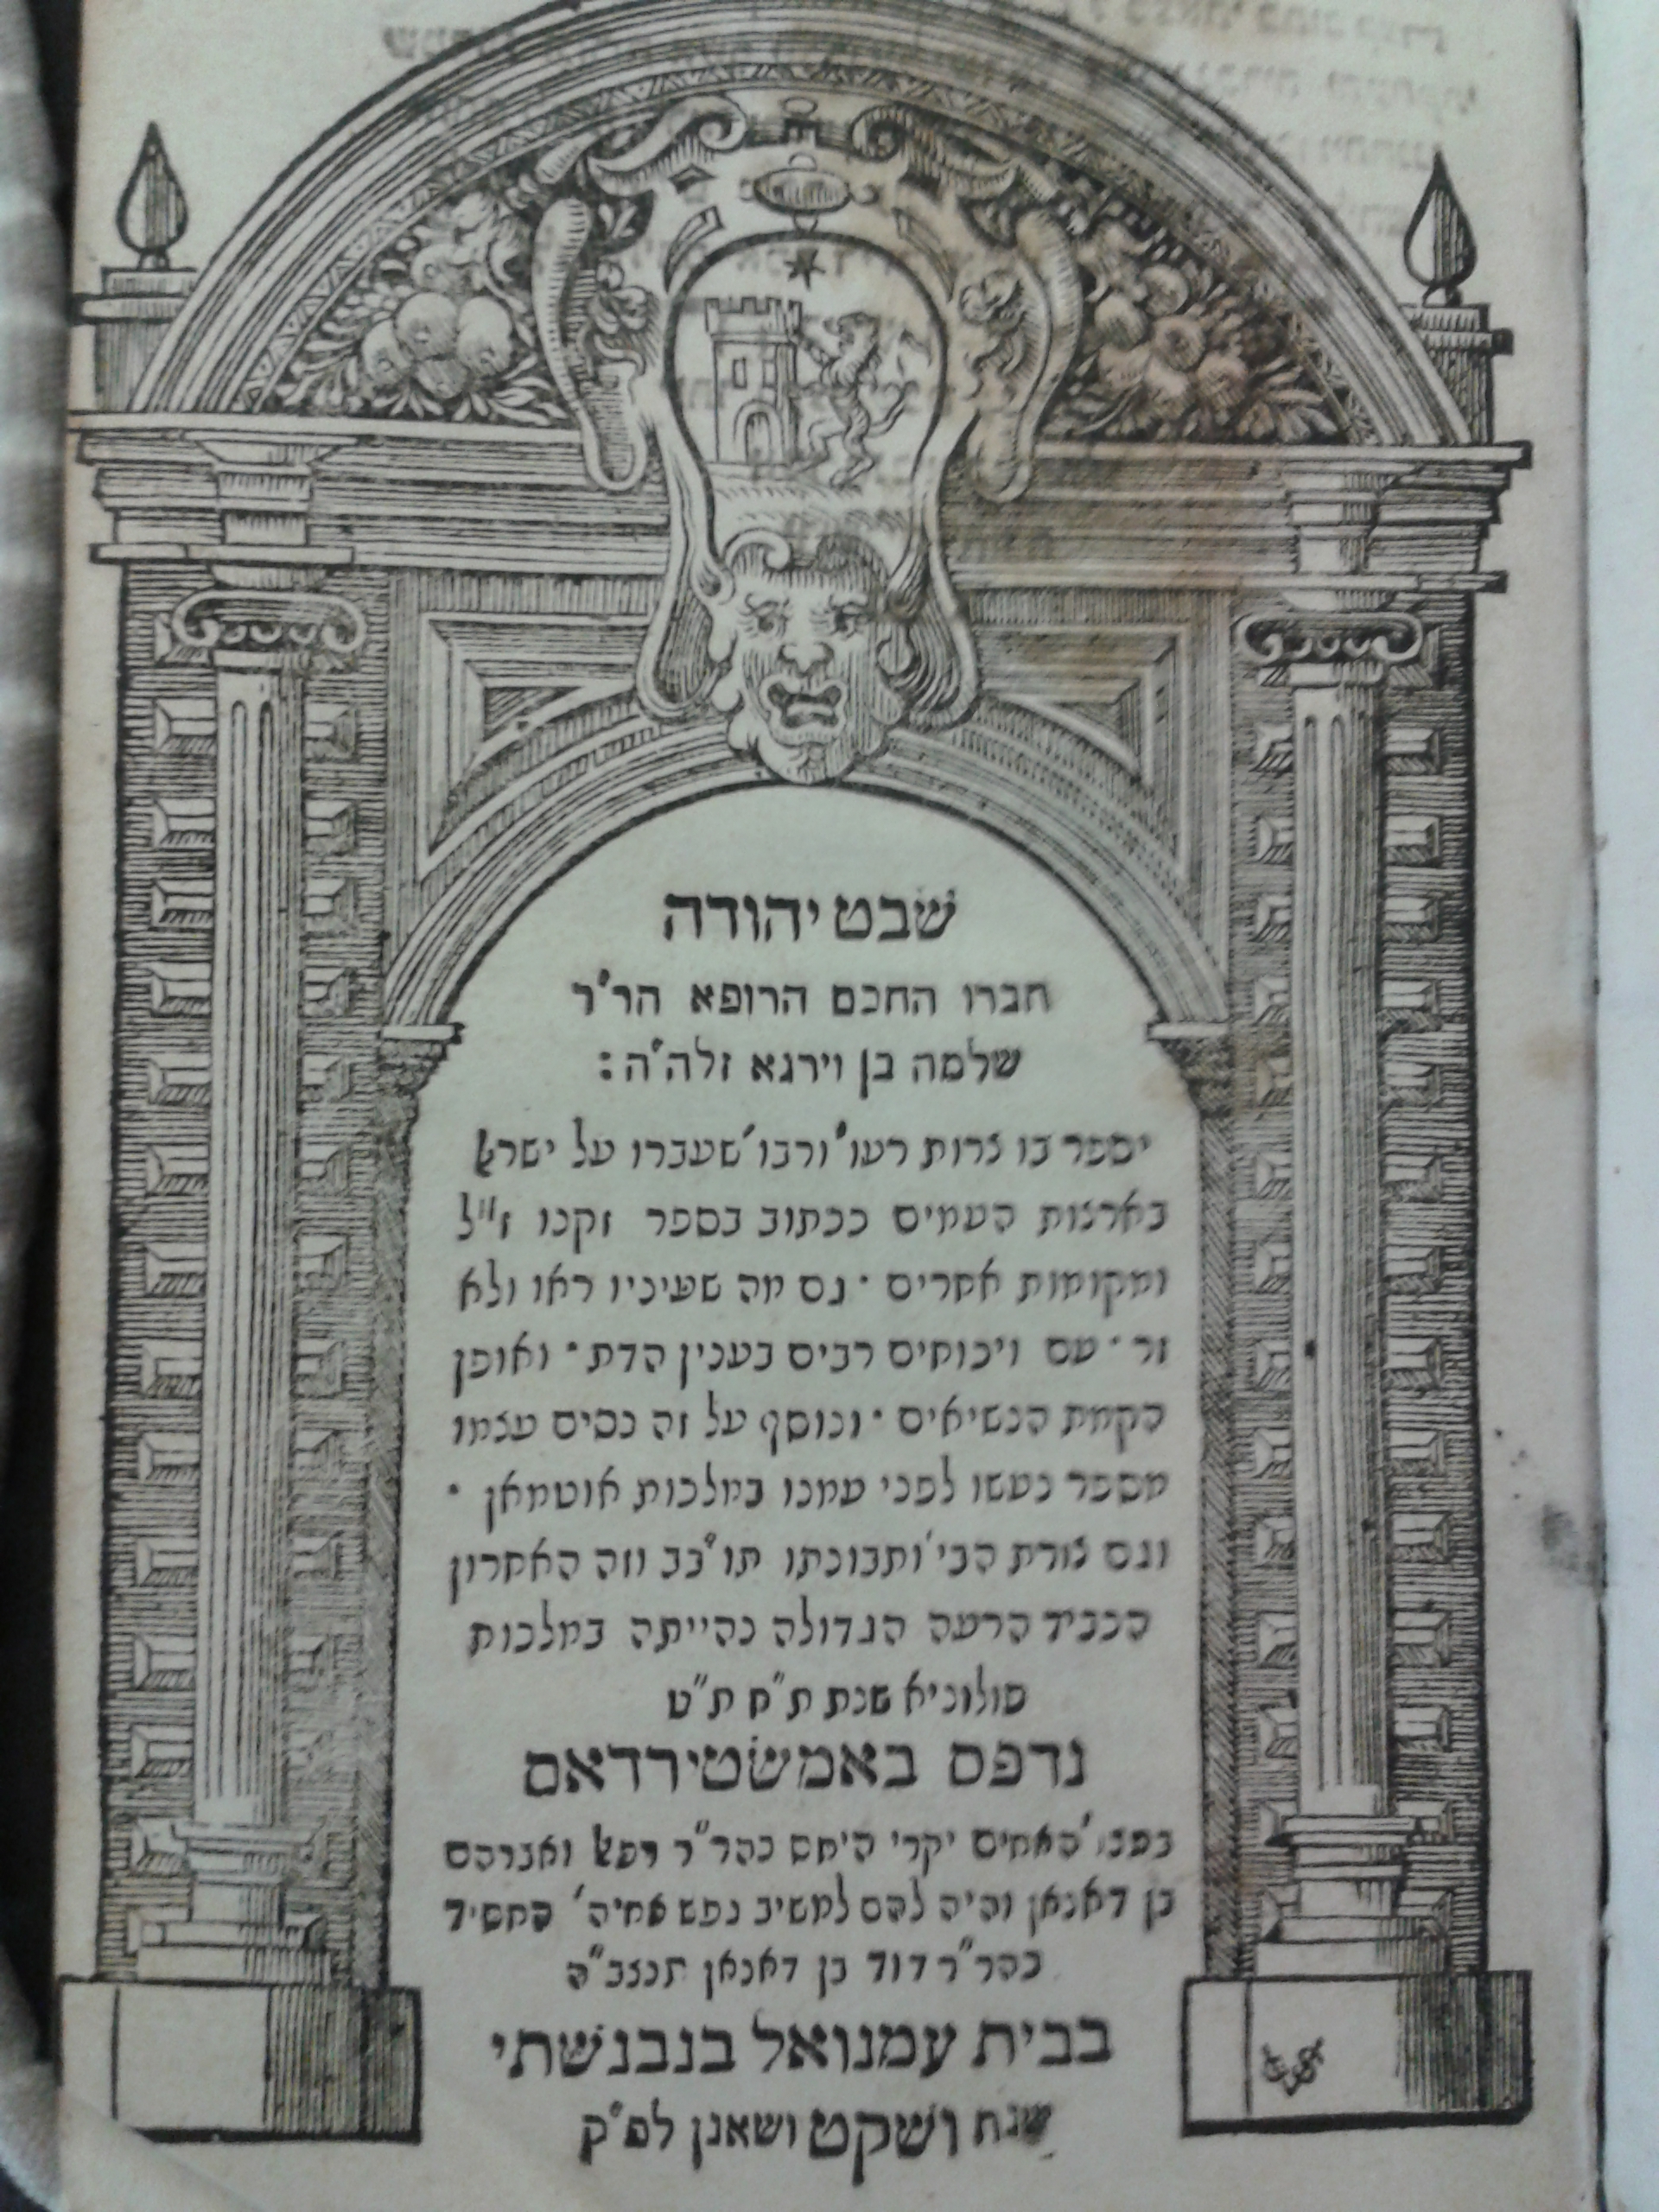 שבט יהודה
חברו החכם הרופא הר"ר
שלמה בן וירגא זלה"ה:
יספר בו צרות רעו' ורבו' שעברו על ישראל
בארצות העמים ככתוב בספר זקנו ז"ל
ומקומות אחרים · גם מה שעיניו ראו ולא
זר · עם ויכוחים רבים בענין הדת · ואופן
הקמת הנשיאים · ונוסף על זה נסים עצמו
מספר נעשו לפני עמנו במלכות אוטמאן ·
וגם צורת הבי' ותבונתו תו"בב וזה האחרון
הכביד הרעה הגדולה נהייתה במלכות
פולוניא שנת ת"ח ת"ט
נדפס באמשטירדאם
האחים יקרי היחס כהר"ר רפאל ואברהם
בן דאנאן והיה להם למשיב נפש אחיה' החסיד
כהר"ר דוד בן דאנאן תנצב"ה
בבית עמנואל בנבנשתי
שנת ושקט ושאנן לפ"ק